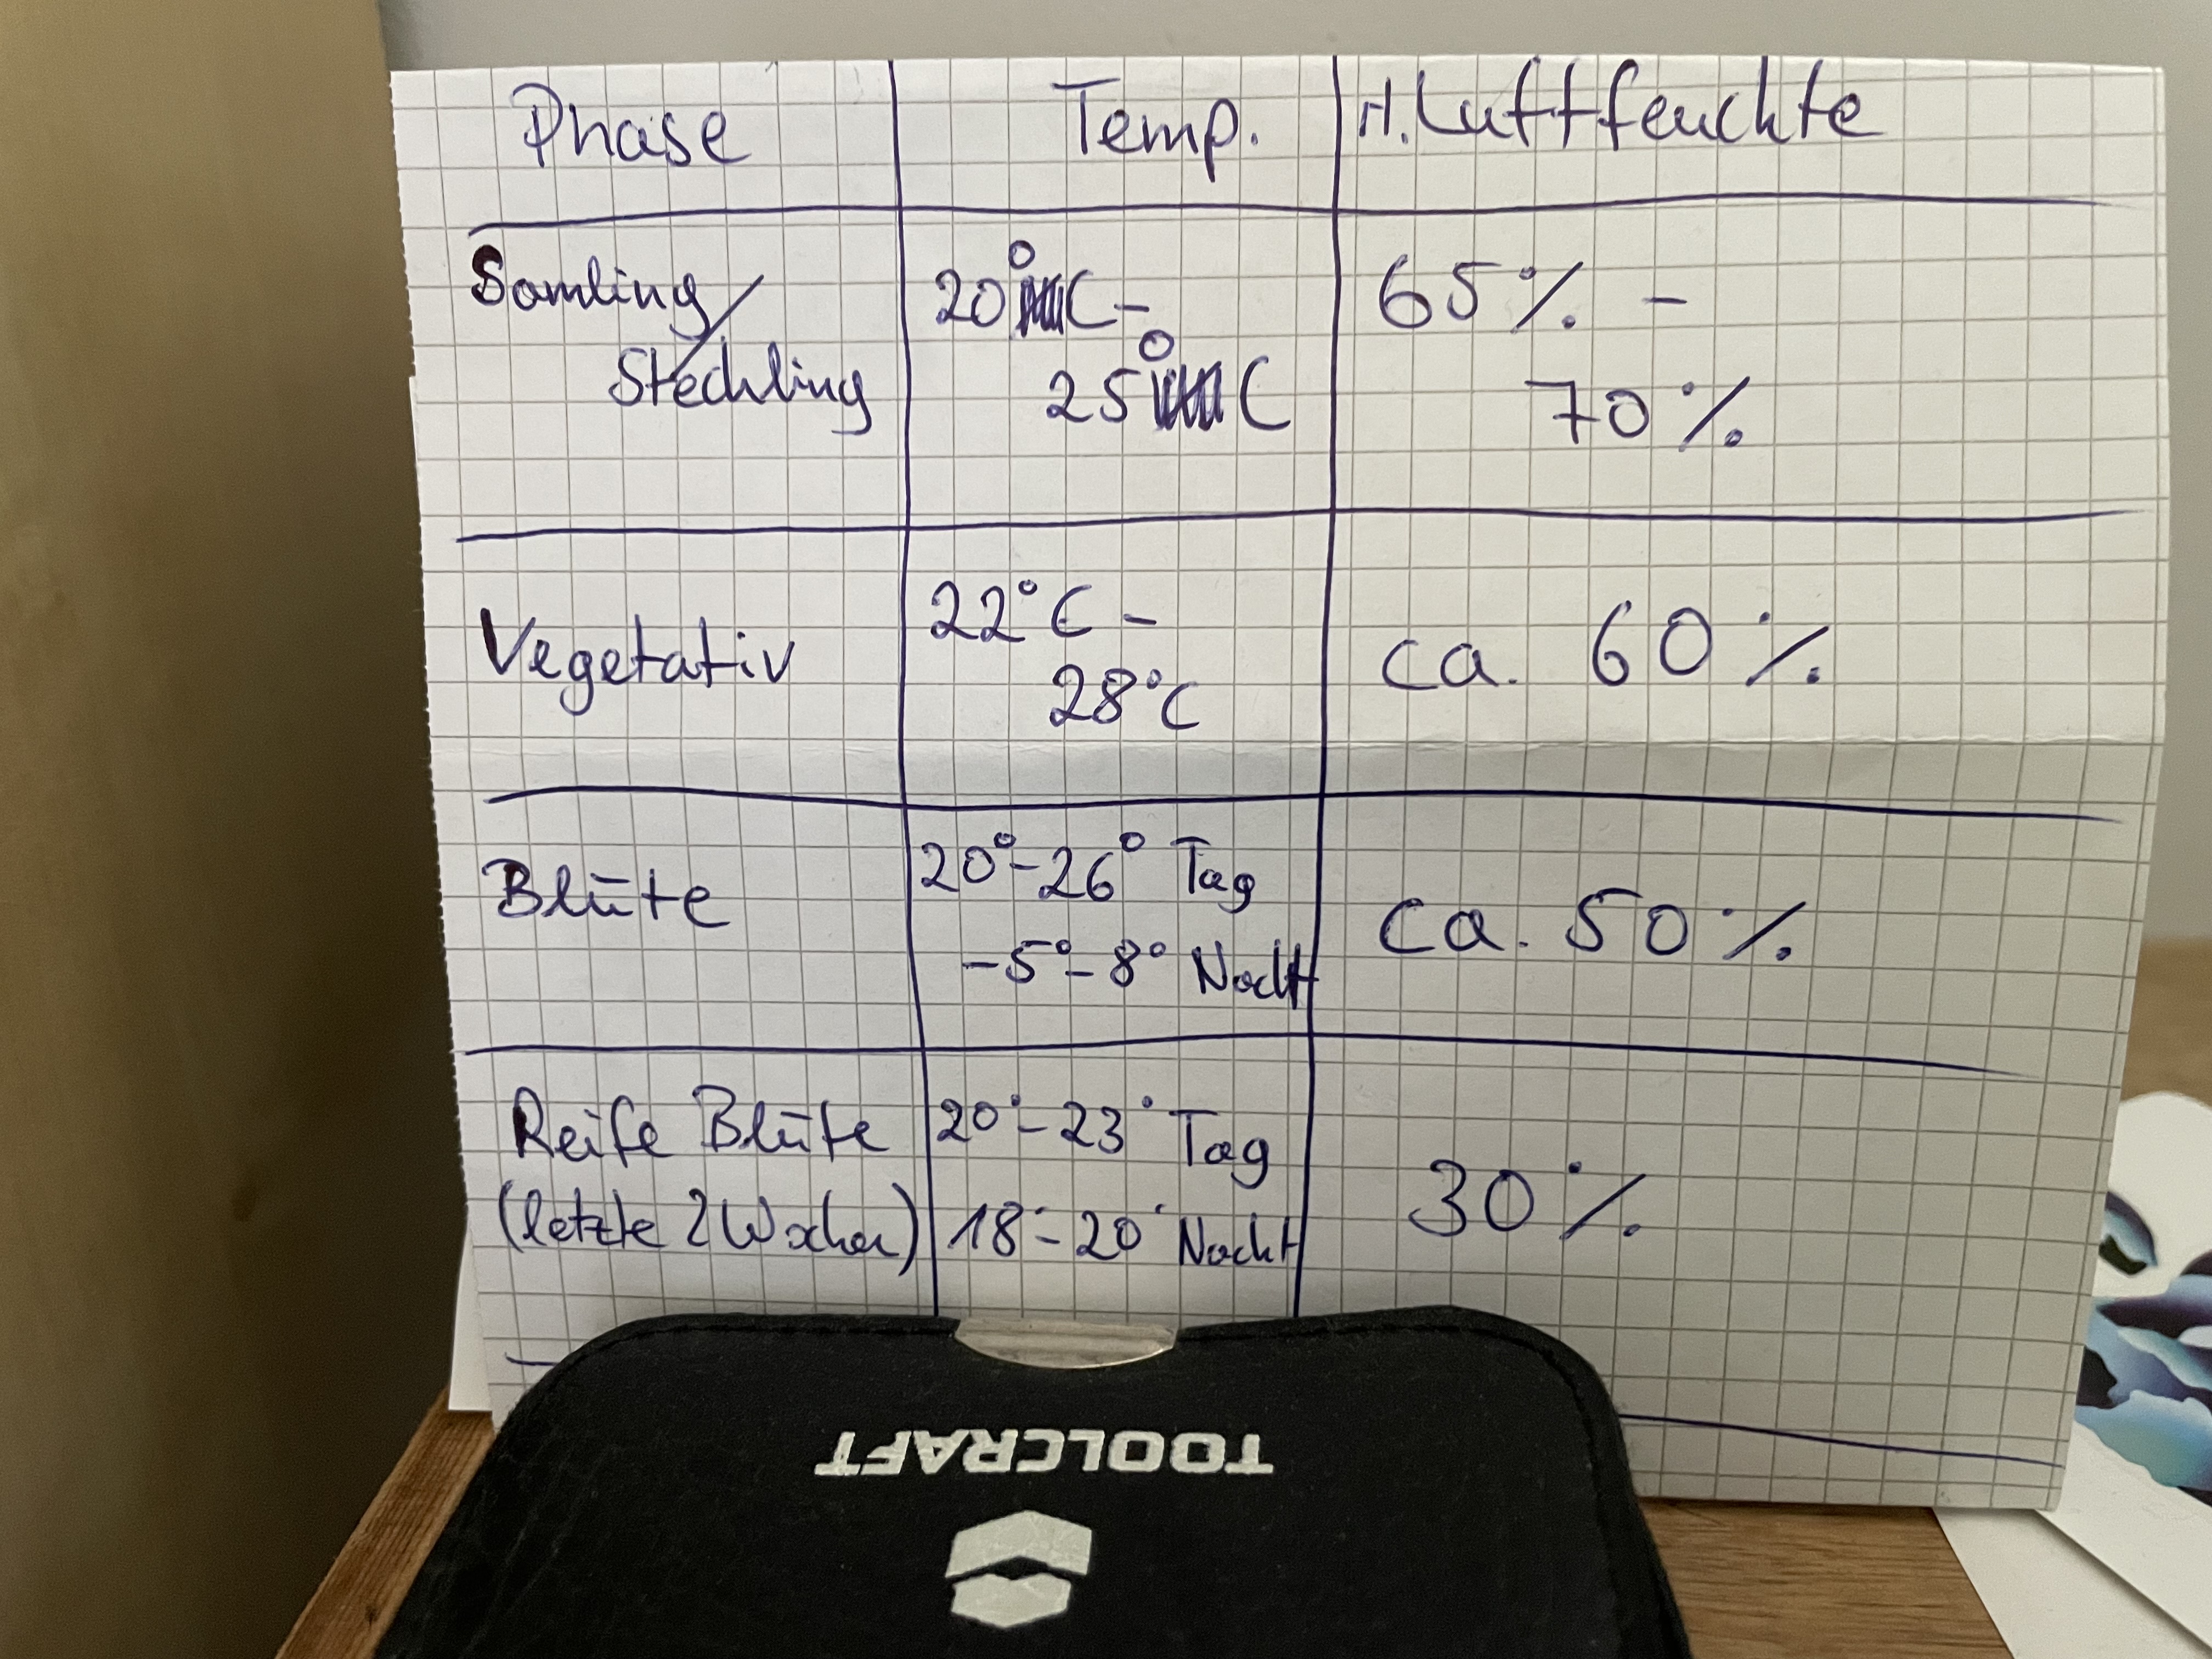 Phase Temp. rl. Luftfeuchte
Samling/ 20°C- 65% -
Steckling 25°C 70%
Vegetativ 22°C - ca. 60%
28°C
Blüte 20°-26° Tag ca. 50%
-5°-8° Nacht
Reife Blüte 20°-23° Tag 30%
(letzte 2 Wochen) 18°-20° Nacht
TOOLCRAFT